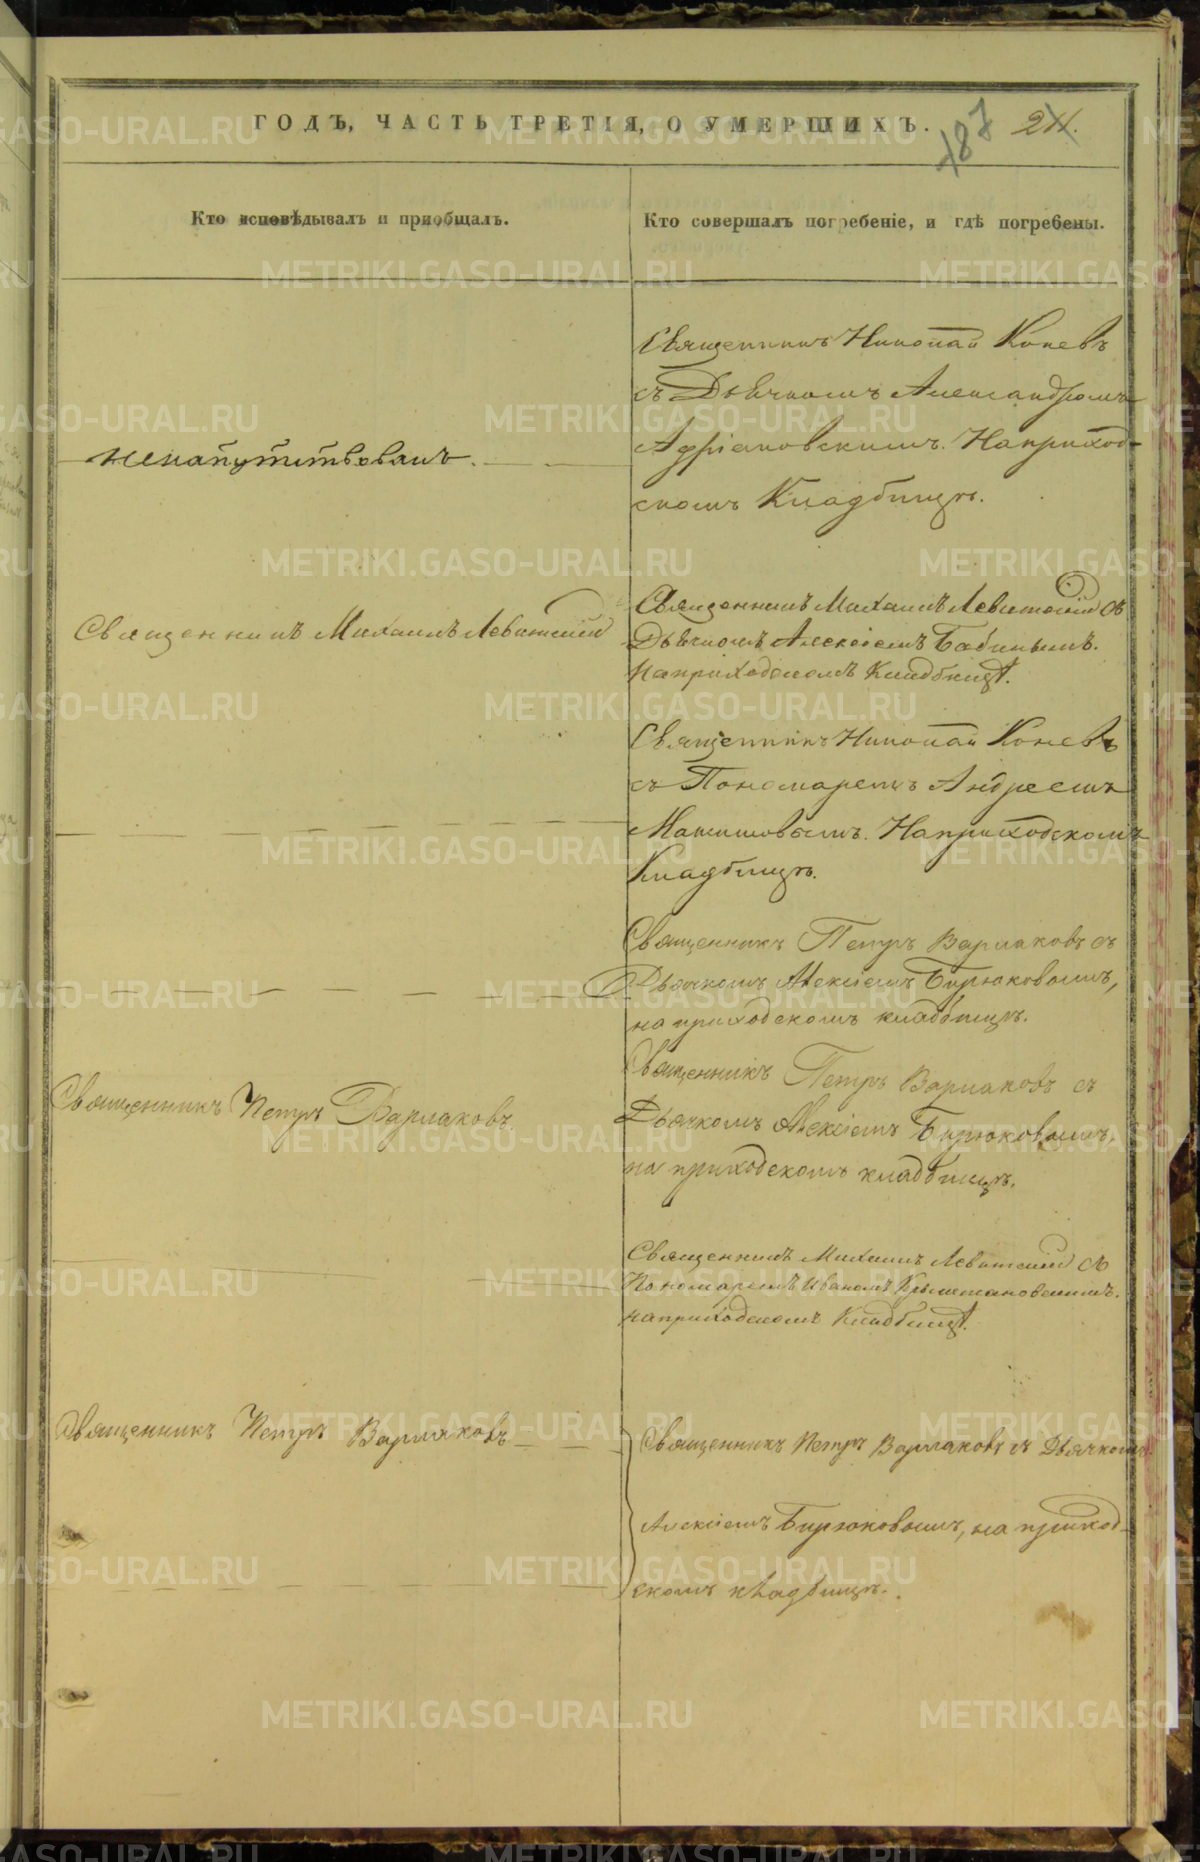 ГОДЪ, ЧАСТЬ ТРЕТІЯ, О УМЕРШИХЪ.
187
24.
Кто исповѣдывалъ и приобщалъ.
Кто совершалъ погребеніе, и гдѣ погребены.
Священникъ Николай Коневъ
съ Дьячкомъ Александромъ
Адріановскимъ. На приход-
скомъ Кладбищѣ.
ненапутствованъ.
Священникъ Михаилъ Левитскій
Священникъ Михаилъ Левитскій съ
Дьячкомъ Алексіемъ Бабинымъ.
На приходскомъ Кладбищѣ.
Священникъ Николай Коневъ
съ Пономаремъ Андреемъ
На приходскомъ
Кладбищѣ.
Священникъ Петръ Варлаковъ съ
Дьячкомъ Алексіемъ Бирюковымъ,
на приходскомъ кладбищѣ.
Священникъ Петръ Варлаковъ
Священникъ Петръ Варлаковъ съ
Дьячкомъ Алексіемъ Бирюковымъ,
на приходскомъ кладбищѣ.
Священникъ Михаилъ Левитскій съ
Пономаремъ Иваномъ
на приходскомъ Кладбищѣ.
Священникъ Петръ Варлаковъ
Священникъ Петръ Варлаковъ съ Дьячкомъ
Алексіемъ Бирюковымъ, на приход-
скомъ кладбищѣ.
METRIKI.GASO-URAL.RU